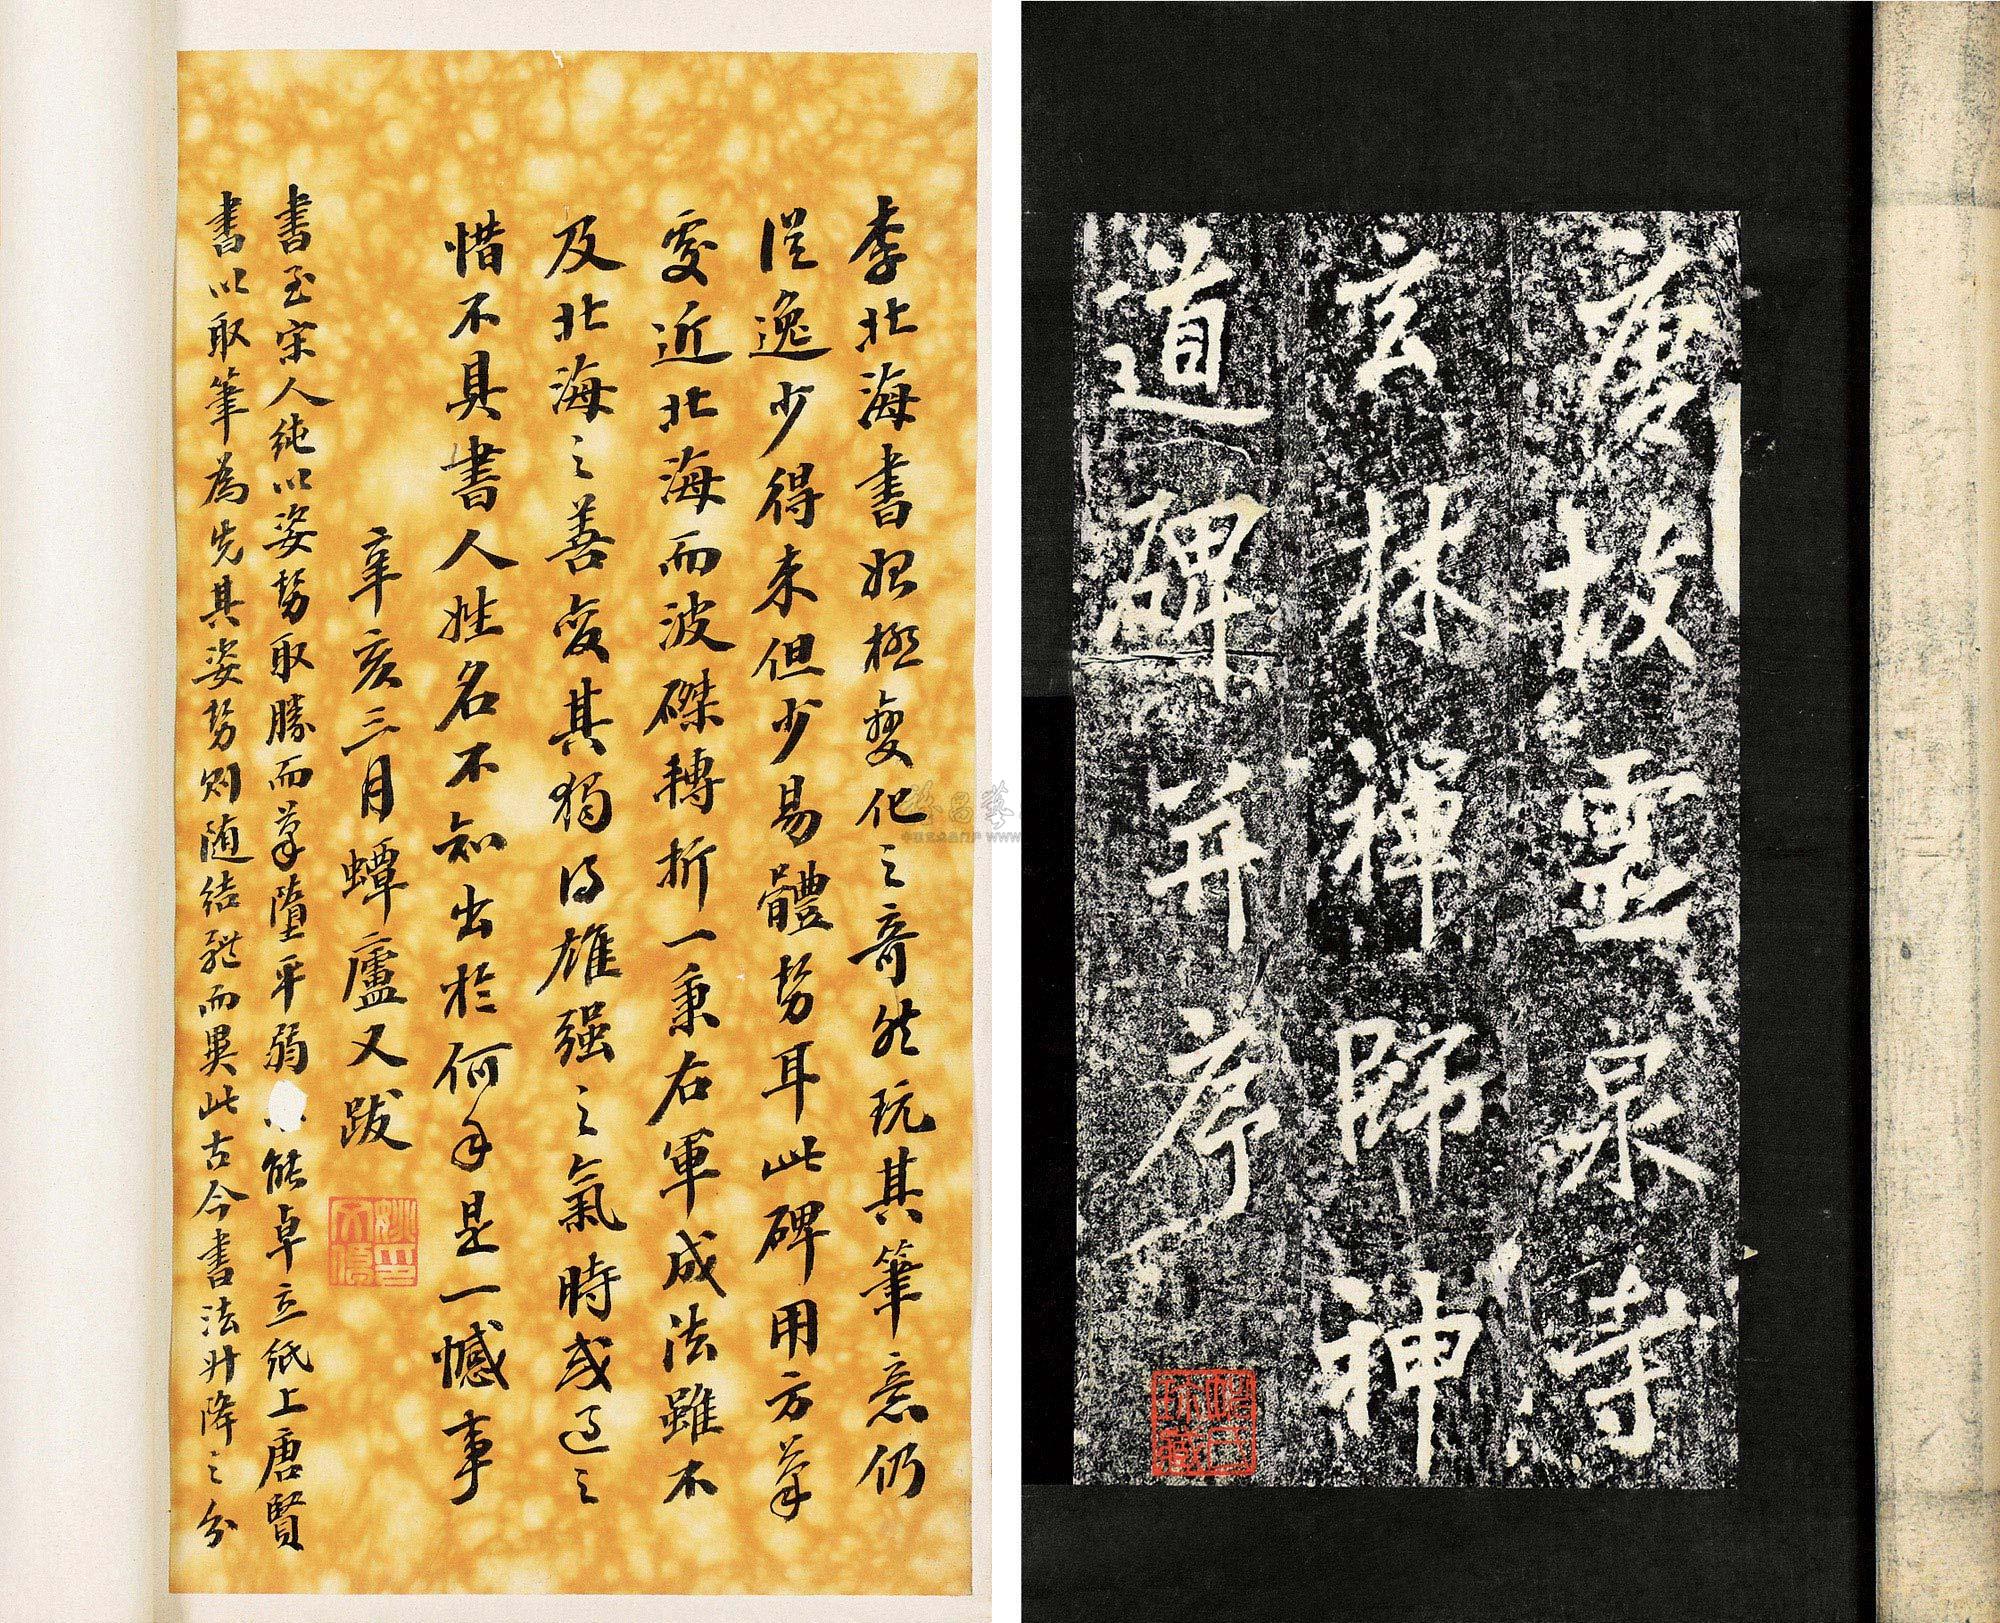 唐故靈泉寺
玄林禪師神
道碑并序
李北海書始極變化之奇然玩其筆意仍
從逸少得來但少易體勢耳此碑用方筆
處近北海而波磔轉折一秉右軍成法雖不
及北海之善變其獨得雄强之氣時或過之
惜不具書人姓名不知出於何手是一憾事
辛亥三月蟫廬又跋
書至宋人純以姿勢取勝而筆墮平弱 能卓立紙上唐賢
書以取筆為先其姿勢則随結體而異此古今書法升降之分